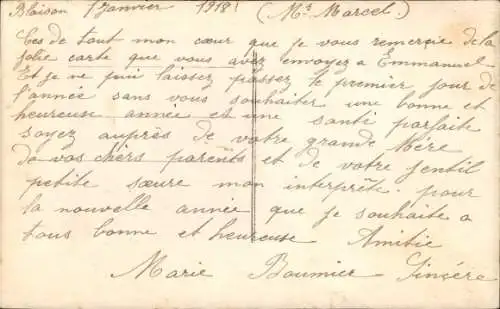 Blaison 1 Janvier 1918! (Mr Marcel.)
Ces de tout mon cœur que je vous remercie de la
jolie carte que vous avez envoyez a Emmanuel
Et je ne puis laissez passez le premier jour de
l'année sans vous souhaiter une bonne et
heureuse année et une santé parfaite
soyez auprès de votre grande Mère
de vos chers parents et de votre gentil
petite sœure mon interprête. pour
la nouvelle année que je souhaite a
tous bonne et heureuse Amitie
Marie Baumier Sincére